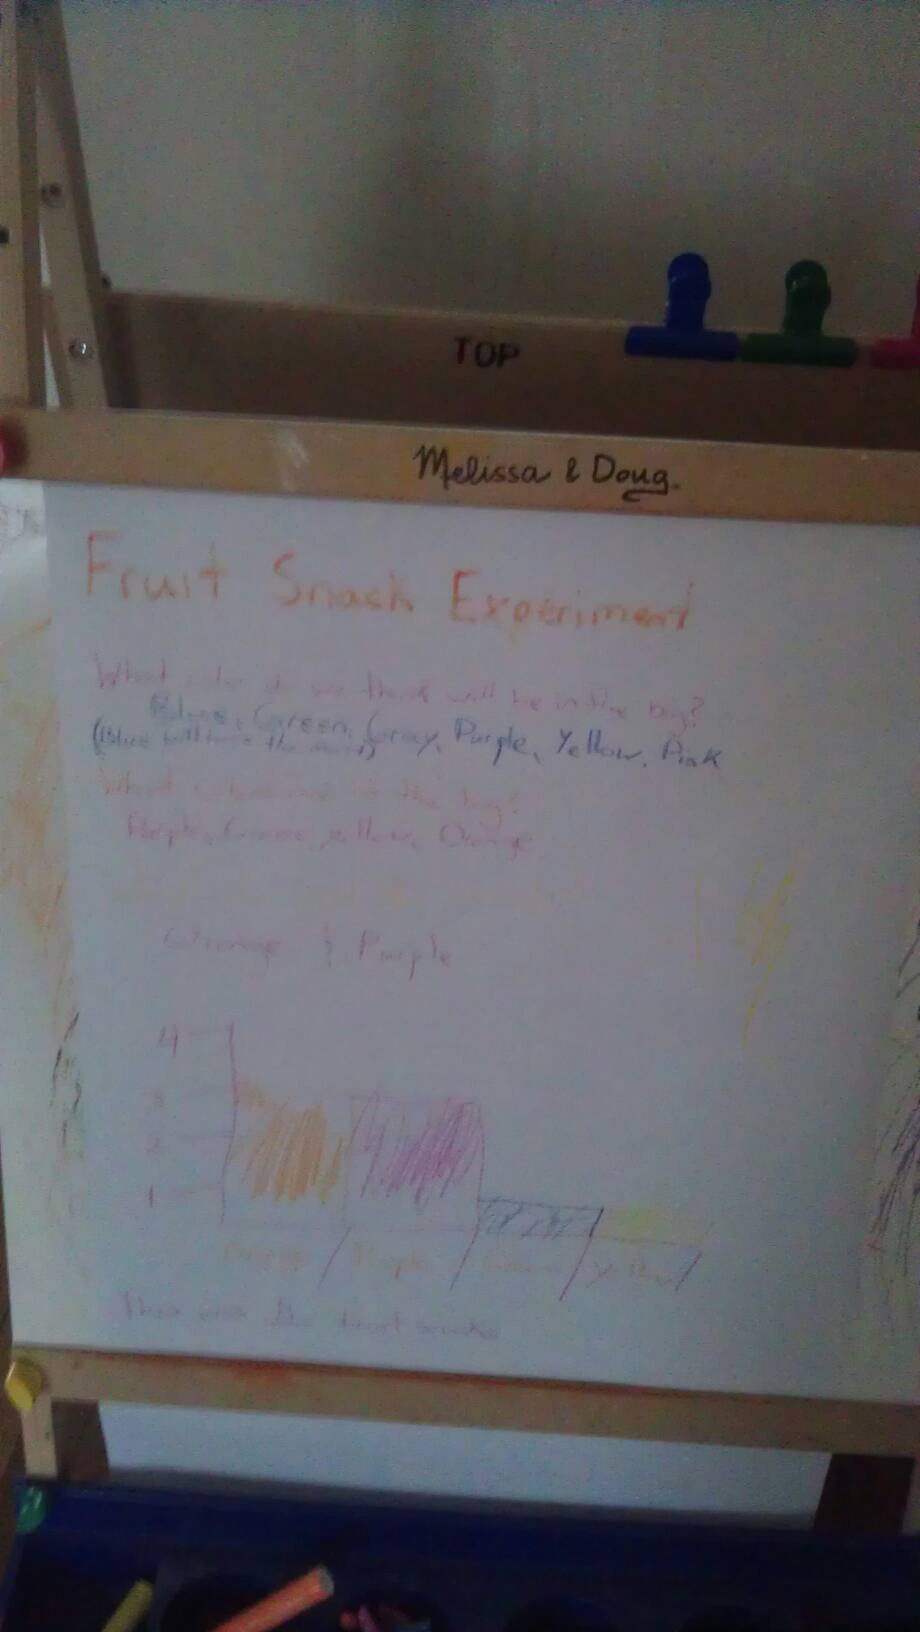 TOP
Melissa & Doug
Fruit Snack Experiment
What color do we think will be in the bag?
Blue, Green, Gray, Purple, Yellow, Pink
(Blue will have the most)
What in the bag?
Purple, Green, yellow, Orange
Orange & Purple
4
3
2
1
Orange Purple Green Yellow
fruit snacks